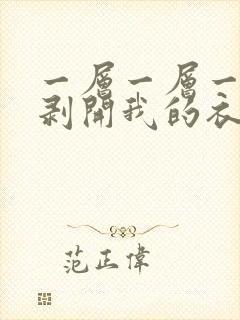 一層一層一
剥開我的衣
范正偉